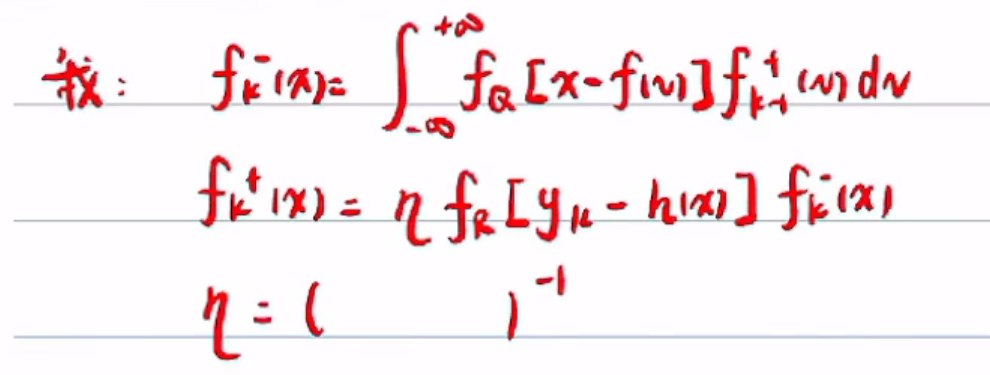 找: f_k^-(x) = ∫_{-∞}^{+∞} f_Q[x-f(v)] f_{k-1}^+(v) dv
f_k^+(x) = η f_R[y_k - h(x)] f_k^-(x)
η = ( )^{-1}